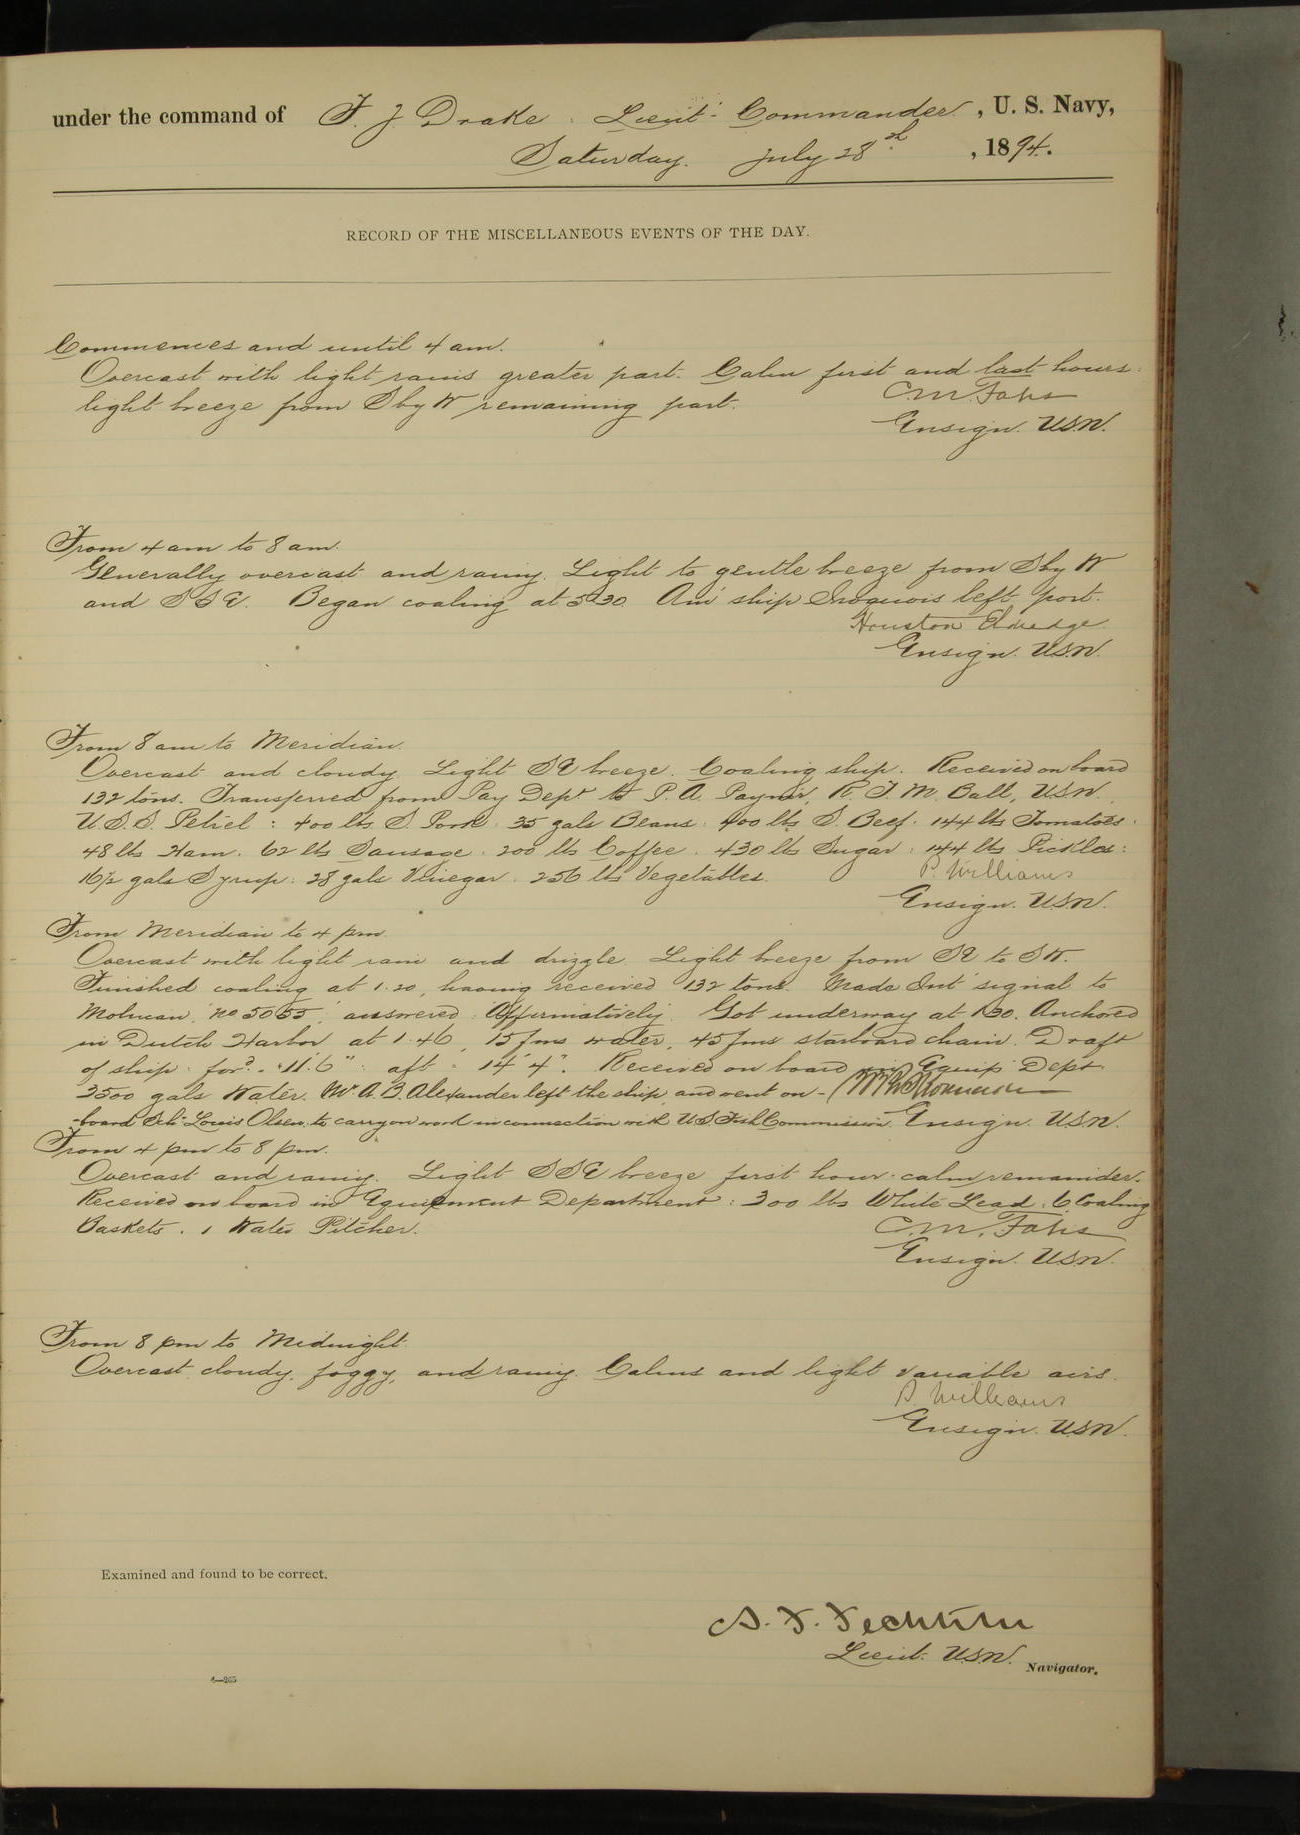 under the command of F. J. Drake. Lieut. Commander, U. S. Navy,
Saturday. July 28th, 1894.
RECORD OF THE MISCELLANEOUS EVENTS OF THE DAY.
Commences and until 4 am.
Overcast with light rains greater part. Calm first and last hours:
light breeze from S by W remaining part.
C. M. Fahs
Ensign. U.S.N.
From 4 am to 8 am.
Generally overcast and rainy. Light to gentle breeze from S by W
and SSE. Began coaling at 5.30. Am ship Iroquois left port.
Houston Eldredge
Ensign. U.S.N.
From 8 am to Meridian.
Overcast and cloudy. Light SE breeze. Coaling ship. Received on board
132 tons. Transferred from Pay Dept to P. A. Paymr. R. T. M. Ball, U.S.N.
U.S.S. Petrel: 400 lbs S. Pork. 35 gals Beans. 400 lbs S. Beef. 144 lbs Tomatoes.
48 lbs Ham. 62 lbs Sausage. 200 lbs Coffee. 430 lbs Sugar. 144 lbs Pickles:
16½ gals Syrup. 28 gals Vinegar. 256 lbs Vegetables.
P. Williams
Ensign. U.S.N.
From Meridian to 4 pm.
Overcast with light rain and drizzle. Light breeze from SE to SW.
Finished coaling at 1.20, having received 132 tons. Made Int signal to
Mohican. "no 5055", answered Affirmatively. Got underway at 1.30. Anchored
in Dutch Harbor at 1.46, 15 fms water, 45 fms starboard chain. Draft
of ship. ford. 11' 6": aft. 14' 4". Received on board in Equip Dept
3500 gals Water. Mr A. B. Alexander left the ship and went on-
-board Sch. Louis Olsen to carry on work in connection with U.S. Fish Commission. Ensign. U.S.N.
From 4 pm to 8 pm.
Overcast and rainy. Light SSE breeze first hour. calm remainder.
Received on board in Equipment Department: 300 lbs White Lead. 6 Coaling
Baskets. 1 Water Pitcher.
C. M. Fahs
Ensign. U.S.N.
From 8 pm to Midnight.
Overcast cloudy, foggy, and rainy. Calms and light variable airs.
P. Williams
Ensign. U.S.N.
Examined and found to be correct.
A. F. Fechteler
Lieut. U.S.N. Navigator.